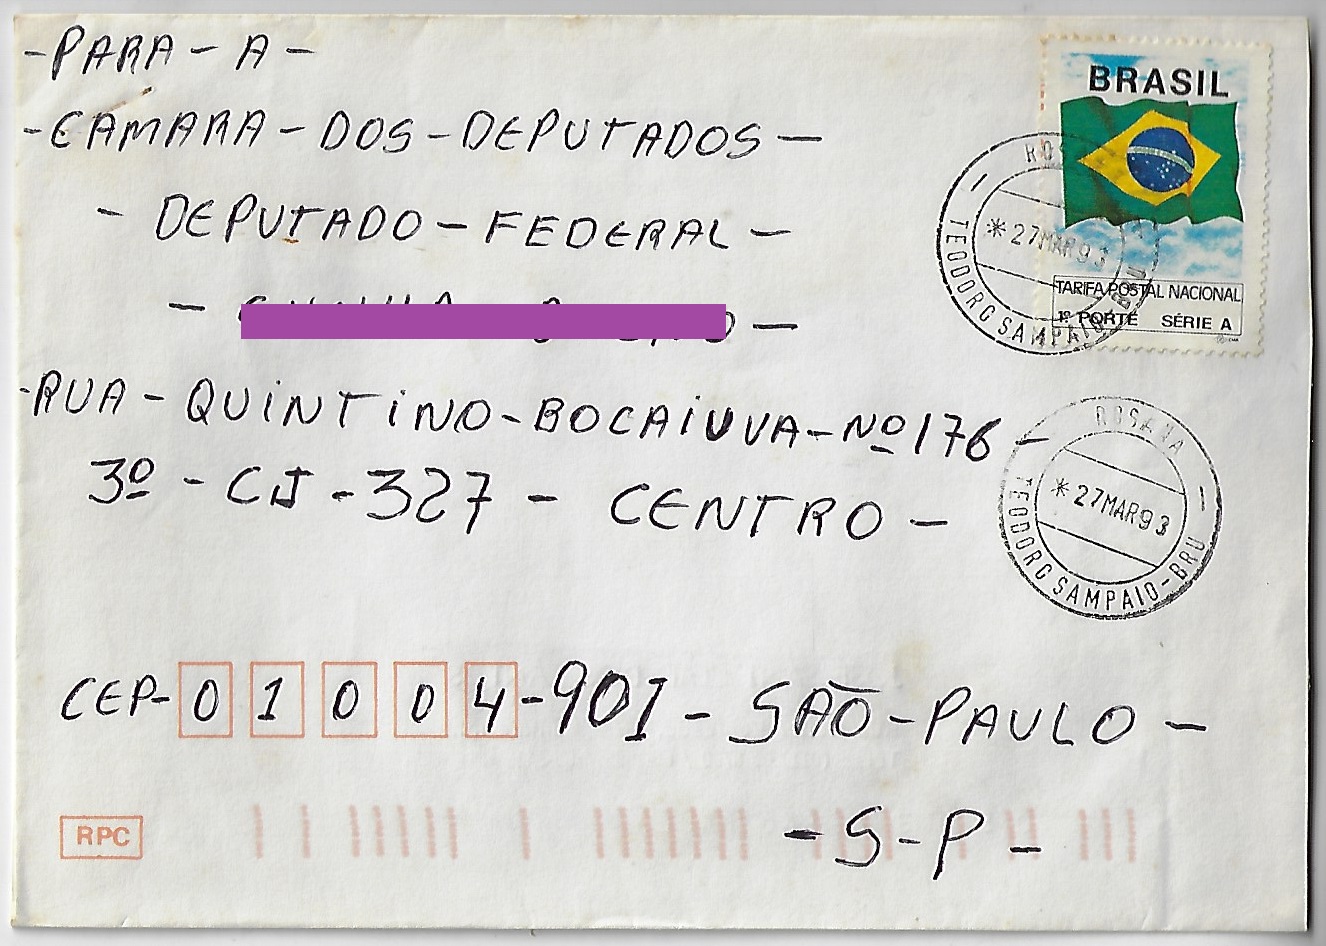 -PARA-A-
-CAMARA-DOS-DEPUTADOS-
-DEPUTADO-FEDERAL-
-RUA-QUINTINO-BOCAIUVA-Nº176-
3º-CJ-327-CENTRO-
CEP-01004-901-SÃO-PAULO-
-S-P-
RPC
BRASIL
TARIFA POSTAL NACIONAL
1º PORTE SÉRIE A
*27MAR93
TEODORO SAMPAIO
ROSANA
*27MAR93
TEODORO SAMPAIO-BRU